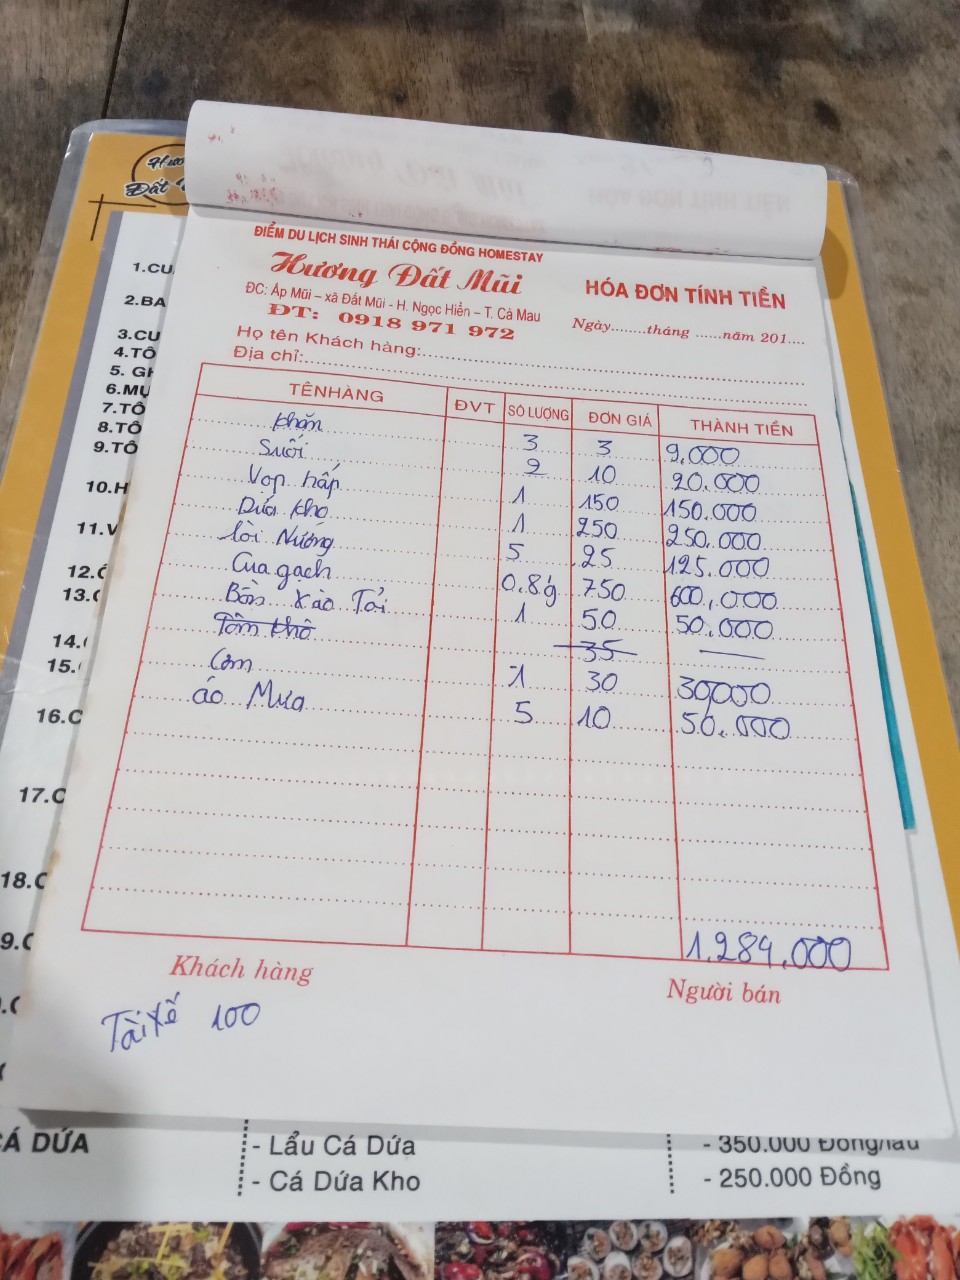 Hươ
Đất
ĐIỂM DU LỊCH SINH THÁI CỘNG ĐỒNG HOMESTAY
Hương Đất Mũi
HÓA ĐƠN TÍNH TIỀN
ĐC: Ấp Mũi – xã Đất Mũi - H. Ngọc Hiển – T. Cà Mau
ĐT: 0918 971 972
Ngày........tháng ......năm 201....
Họ tên Khách hàng:
Địa chỉ:
TÊN HÀNG ĐVT SỐ LƯỢNG ĐƠN GIÁ THÀNH TIỀN
Khăn 3 3 9.000
Suối 2 10 20.000
Vọp hấp 1 150 150.000
Dứa kho 1 250 250.000
lòi Nướng 5 25 125.000
Cua gạch 0.8g 750 600.000
Bồn xào Tỏi 1 50 50.000
Tôm khô 35
Cơm 1 30 30,000
áo Mưa 5 10 50.000
1.284.000
Khách hàng
Người bán
Tài xế 100
1.CU
2.BA
3.CU
4.TÔ
5. GH
6.MỰ
7.TÔ
8.TÔ
9.TÔ
10.H
11.V
12.
13.
14.
15.
16.C
17.C
18.C
9.C
CÁ DỨA
- Lẩu Cá Dứa - 350.000 Đồng/lẩu
- Cá Dứa Kho - 250.000 Đồng